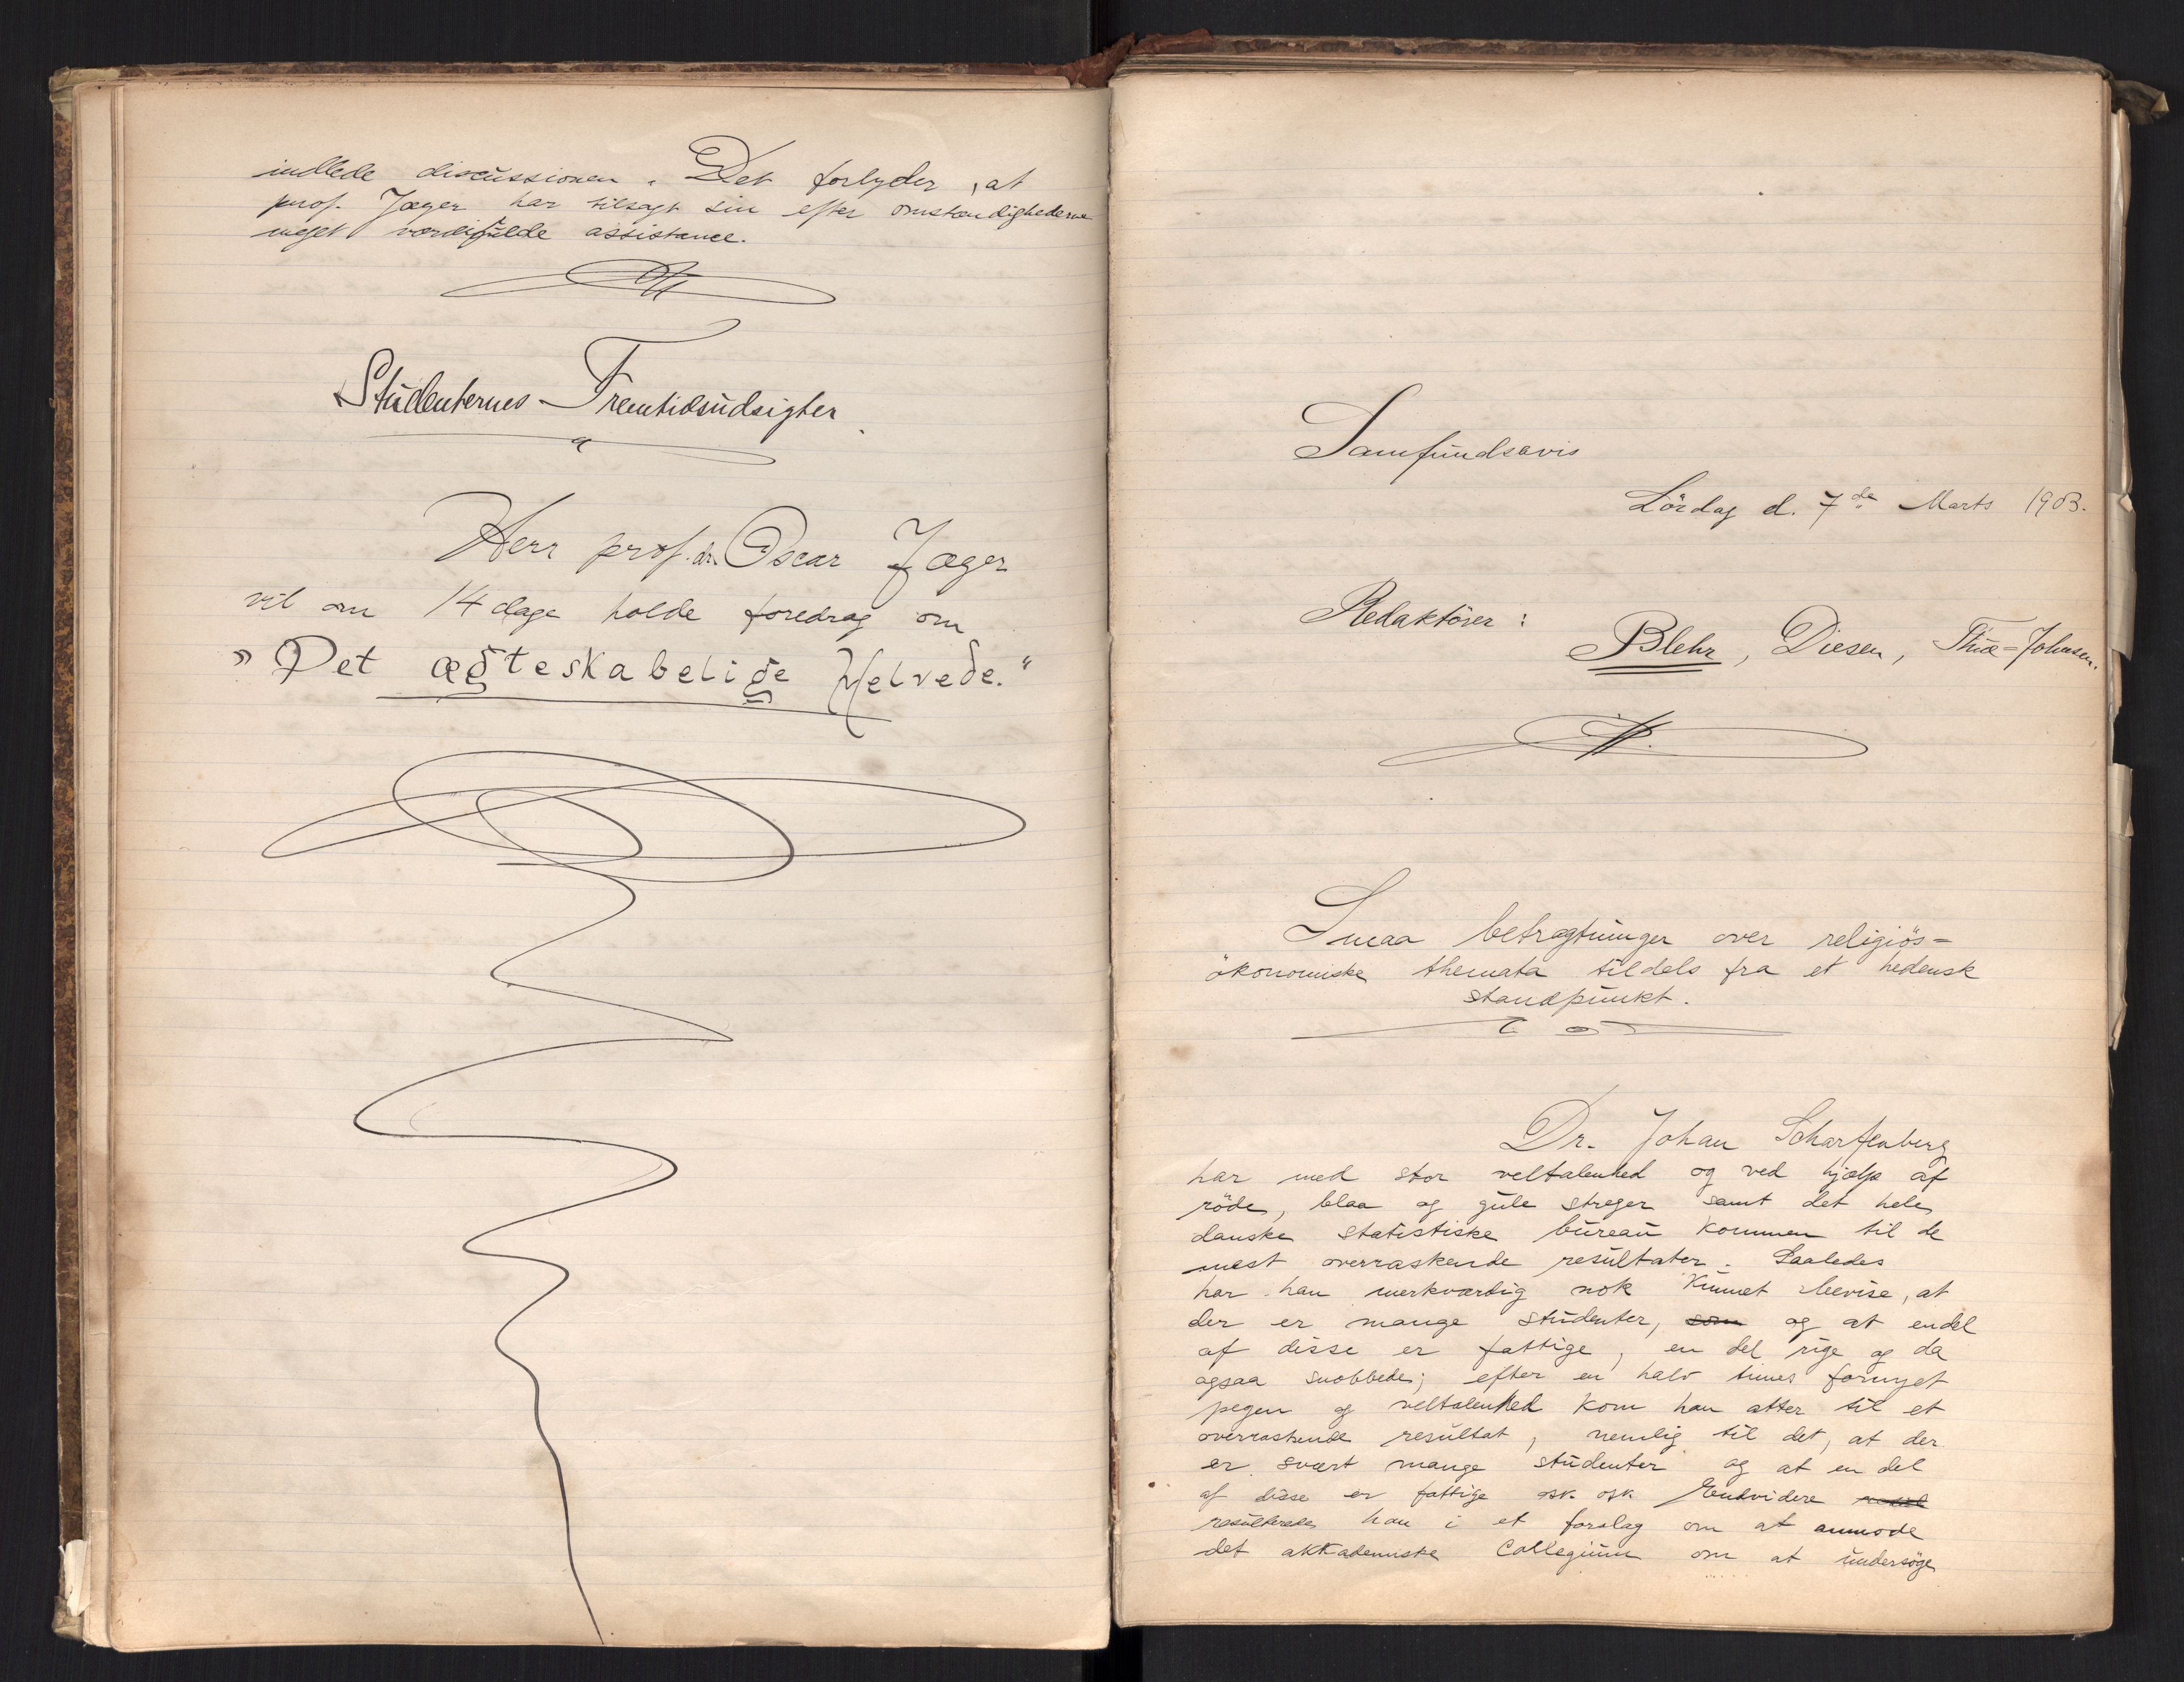 indlede discussionen. Det forlyder, at
prof. Jæger har tilsagt sin efter omstændighederne
meget værdifulde assistance.
Studenternes-Fremtidsudsigter.
Herr prof. dr. Oscar Jæger
vil om 14 dage holde foredrag om
„Det ægteskabelige Helvede."
Samfundsavis
Lördag d. 7de Marts 1903.
Redaktörer:
Blehr, Diesen, Thue=Johnsen.
Smaa betragtninger over religiös=
ökonomiske themata tildels fra et hedensk
standpunkt.
Dr. Johan Scharfenberg
har med stor veltalenhed og ved hjælp af
röde, blaa og gule streger samt det hele
danske statistiske bureau kommen til de
mest overraskende resultater. Saaledes
har han merkværdig nok kunnet bevise, at
der er mange studenter, som og at endel
af disse er fattige, en del rige og da
ogsaa snobbede; efter en halv times fornyet
pegen og veltalenhed kom han atter til et
overraskende resultat, nemlig til det, at der
er svært mange studenter og at en del
af disse er fattige osv. osv. Endvidere
resulterede han i et forslag om at anmode
det akkademiske Collegium om at undersöge